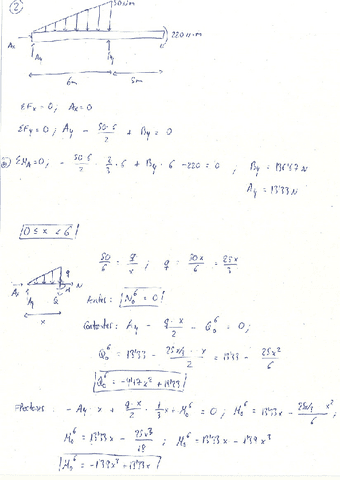 2
50 N/m
220 N·m
Ax
Ay By
6m 5m
ΣFx = 0; Ax = 0
ΣFy = 0; Ay - 50·6/2 + By = 0
ΣMA = 0; - 50·6/2 · 2/3 · 6 + By · 6 - 220 = 0; By = 136'67 N
Ay = 13'33 N
0 ≤ x ≤ 6
50/6 = q/x; q = 50x/6 = 25x/3
q
Ax Ay N
x
N₀⁶ = 0
Cortantes: Ay - q·x/2 - Q₀⁶ = 0;
Q₀⁶ = 13'33 - 25x/3 · x/2 = 13'33 - 25x²/6
Q₀⁶ = -4'17x² + 13'33
Flectores: - Ay · x + q·x/2 · 1/3 x + M₀⁶ = 0; M₀⁶ = 13'33x - 25x/3 x²/6;
M₀⁶ = 13'33x - 25x³/18; M₀⁶ = 13'33x - 1'39x³
M₀⁶ = -1'39x³ + 13'33x